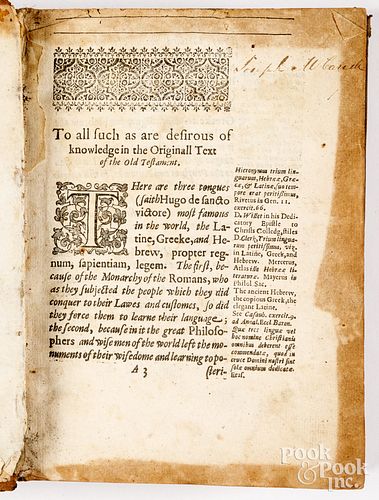 To all such as are desirous of
knowledge in the Originall Text
of the Old Testament.
THere are three tongues
(saith Hugo de sancto
victore) most famous
in the world, the La-
tine, Greeke, and He-
brew, propter reg-
num, sapientiam, legem. The first, be-
cause of the Monarchy of the Romans, who
as they subjected the people which they did
conquer to their Lawes and customes, so did
they force them to learne their language;
the second, because in it the great Philoso-
phers and wise men of the world left the mo-
numents of their wisedome and learning to po-
A 3 steri-
Hieronymus trium lin-
guarum, Hebrææ, Græ-
cæ, & Latinæ, suo tem-
pore erat peritissimus,
Rivetus in Gen. 11.
exercit. 66.
D. in his Dedi-
catory Epistle to
Christs Colledg, stiles
D. Clerk, Trium lingua-
rum peritissimus, viz.
in Latine, Greek, and
Hebrew. Mercerus,
Atlas ille Hebrææ li-
teraturæ. Mayerus in
Philol. Sac.
The ancient Hebrew,
the copious Greek, the
elegant Latine.
See Casaub. exercit.
ad Annal. Eccl. Baron.
Quæ tres linguæ vel
hoc nomine Christianis
omnibus deberent esse
commendatæ, quod in
cruce Domini nostri sint
solæ omnium dedicatæ
Joseph
POOK
& POOK
Inc.